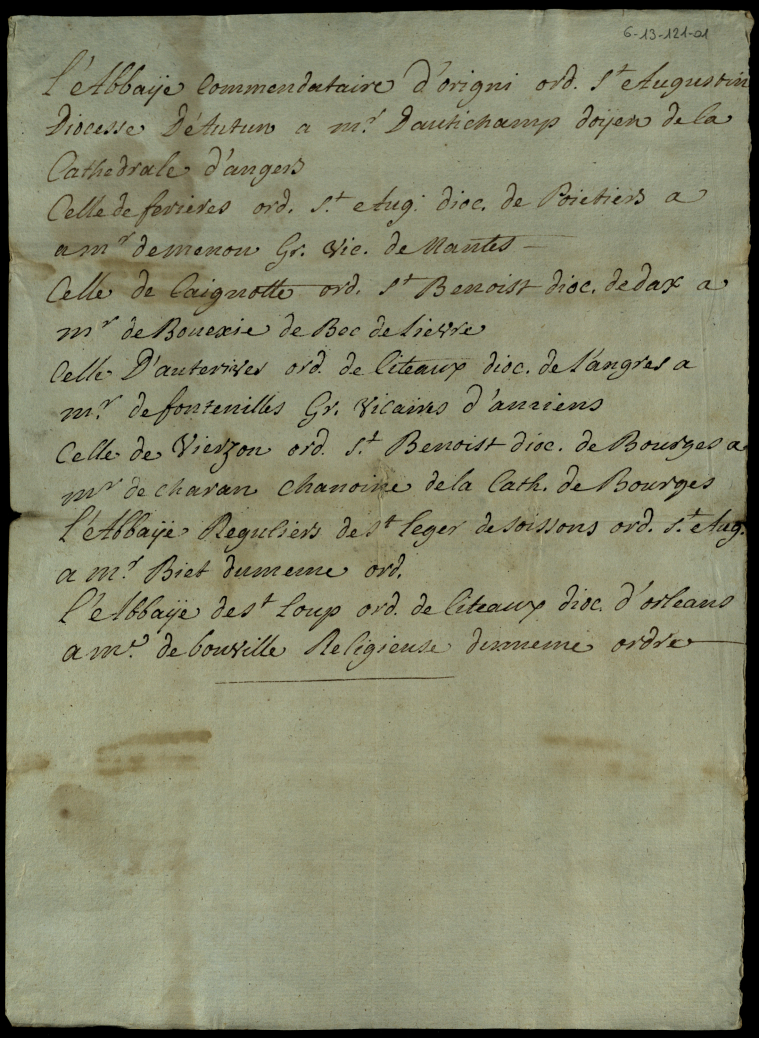 6-13-121-01
L'Abbaÿe Commendataire d'origni ord. St Augustin
Diocesse D'Autun a mr. Dautichamp doÿen de la
Cathedrale d'angers
Celle de ferieres ord. St Aug. dioc. de Poictiers a
a mr de menou Gr. Vic. de Nantes —
Celle de Caignotte ord. St Benoist dioc. de dax a
mr de Bouexie de Bec de Lievre
Celle D'auterives ord. de Citeaux dioc. de Langres a
mr. de fontenilles Gr. Vicaires d'amiens
Celle de Vierzon ord. St Benoist dioc. de Bourges a
mr de charan chanoine de la Cath. de Bourges
L'Abbaÿe Reguliers de St Leger de soissons ord. St Aug.
a mr. Biet du meme ord.
L'Abbaÿe de St Loup ord. de Citeaux dioc. d'orleans
a me. de bouville Religieuse du meme ordre